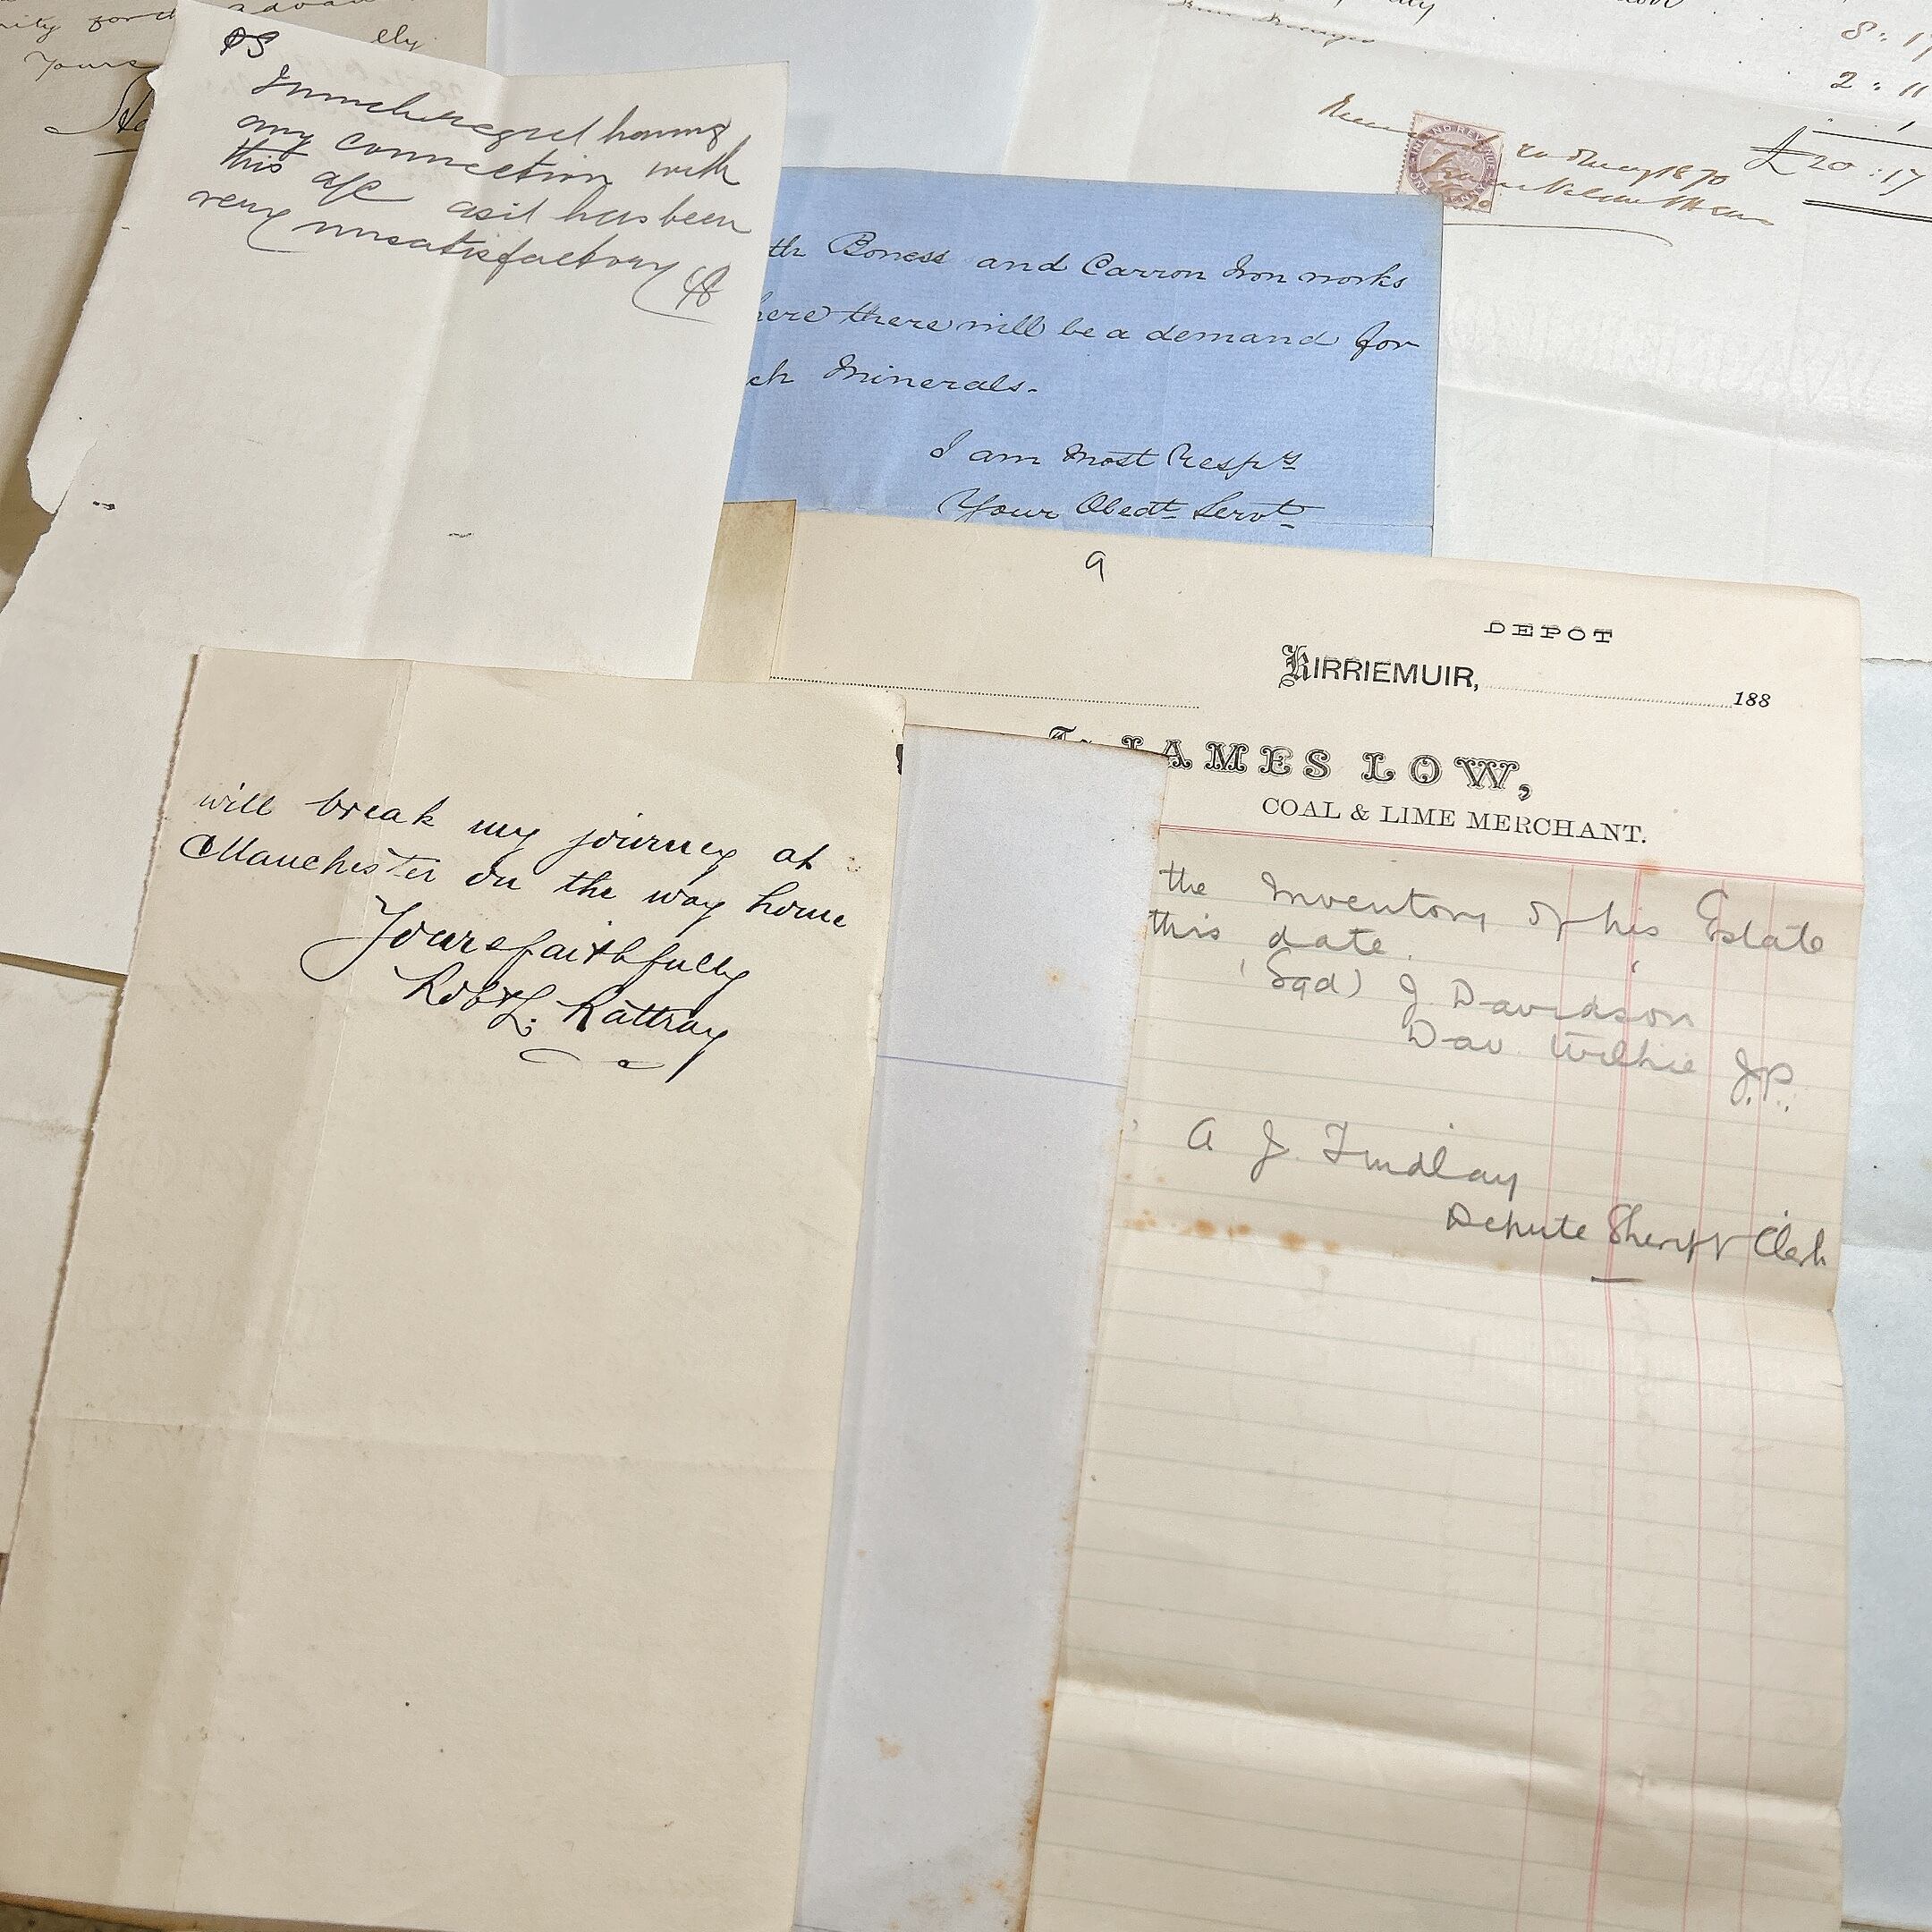 Yours
PS
I much regret having
any connection with
this a/c as it has been
very unsatisfactory
8:17
2:11
£20:17
INLAND REVENUE
1870
th Boness and Carron Iron works
here there will be a demand for
ch Minerals.
I am Most Respy
Your Obedt Servt
a
DEPOT
KIRRIEMUIR, 188
To JAMES LOW,
COAL & LIME MERCHANT.
the Inventory of his Estate
this date.
(Sgd) J Davidson
Dav Wilkie J.P.
A J. Findlay
Depute Sheriff Clerk
will break my journey at
Manchester on the way home
Yours faithfully
Robt L. Rattray